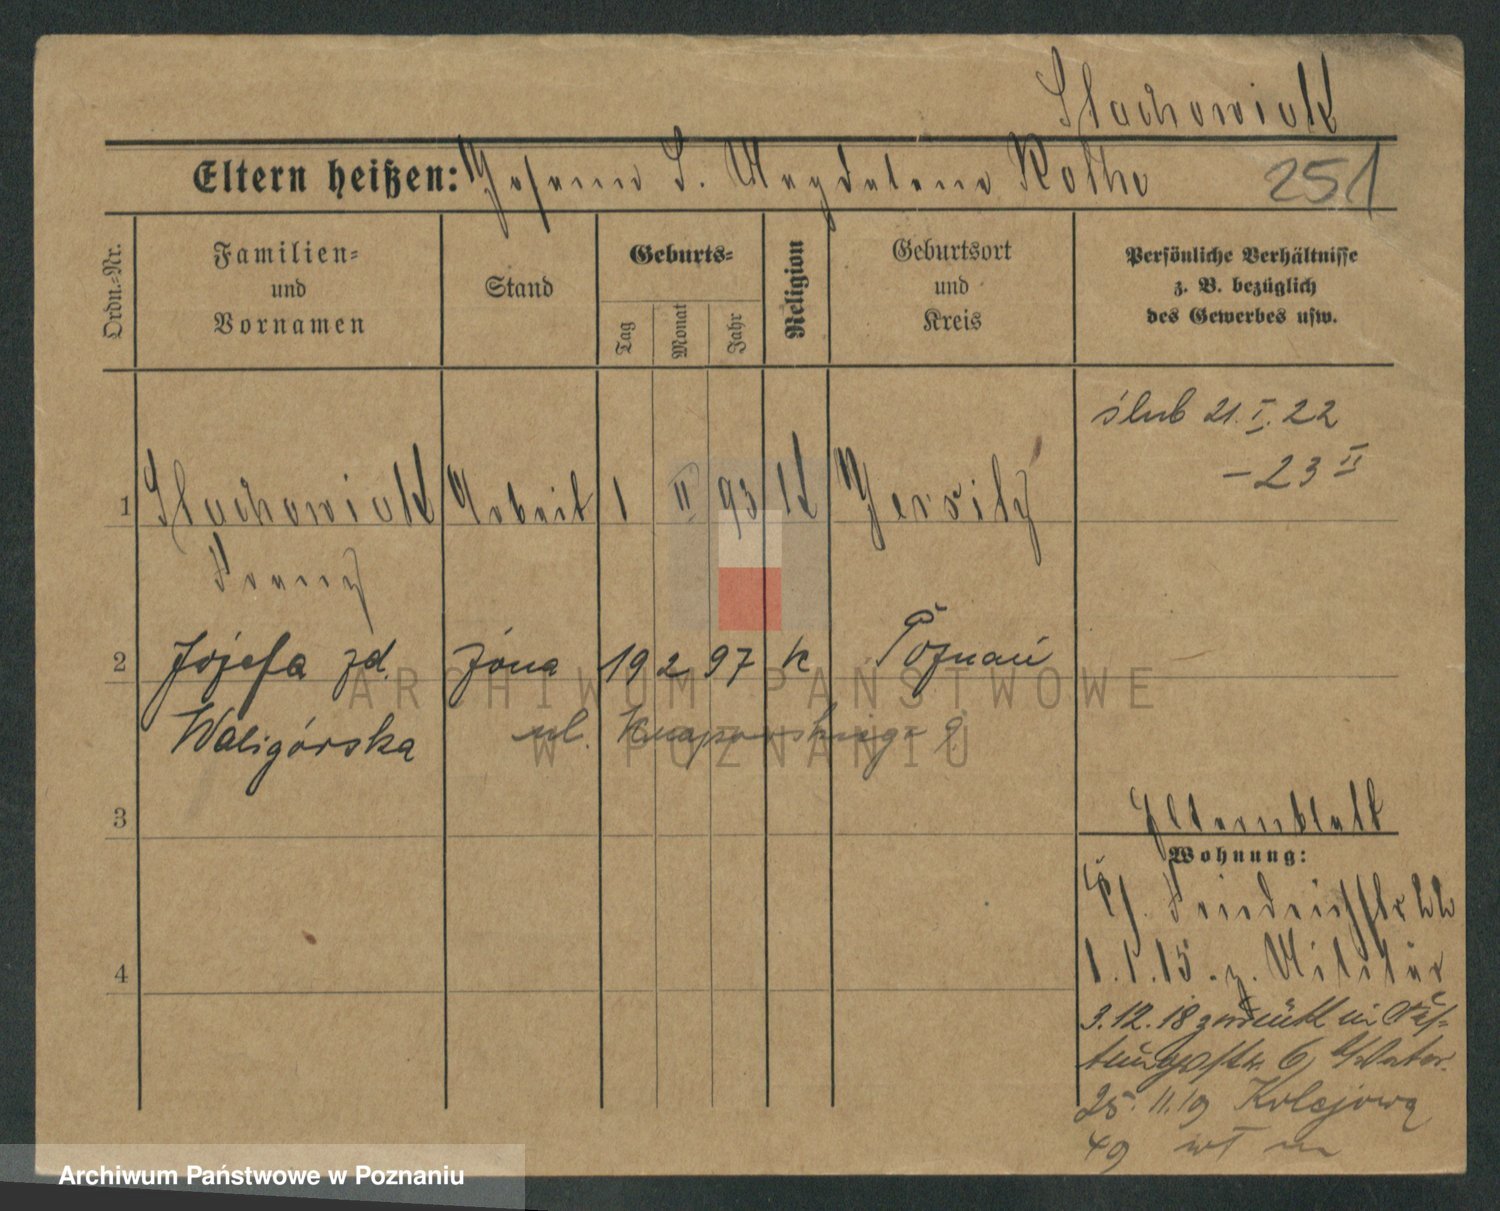 Stachowiak
Eltern heißen: Johann S. Magdalena Rothe 251
Ordn.-Nr.
Familien-
und
Vornamen
Stand
Geburts-
Tag
Monat
Jahr
Religion
Geburtsort
und
Kreis
Persönliche Verhältnisse
z. B. bezüglich
des Gewerbes usw.
ślub 21. I. 22
- 23 II
1 Stachowiak Arbeit 1 II 93 K Jersitz
Franz
2 Józefa zd. żona 19 2 97 k Poznań
Waligórska ul. Knapowskiego 9
3
4
Elternblatt
Wohnung:
Friedrichstr 22
1. 15. z. Militär
3.12.18 zurück in
6
25. 11.19 Kolejowa
49
ARCHIWUM PAŃSTWOWE
W POZNANIU
Archiwum Państwowe w Poznaniu